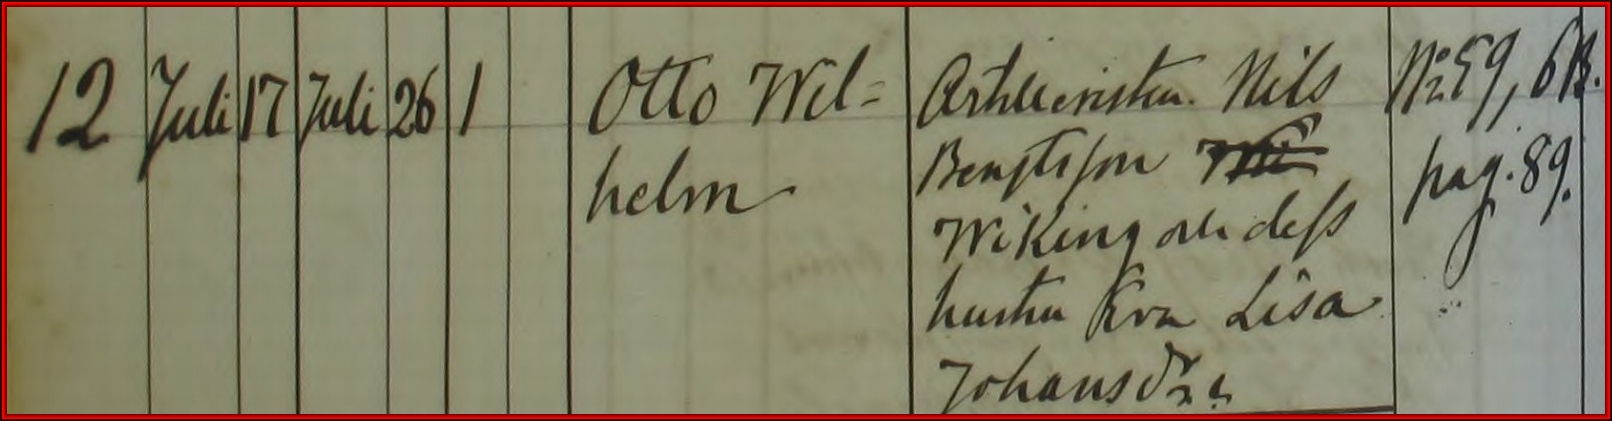 12 Juli 17 Juli 26 1 Otto Wil= Artilleristen Nils No 59, 6 R.
helm Bengtsson pag. 89.
Wiking och dess
hustru Eva Lisa
Johansdr